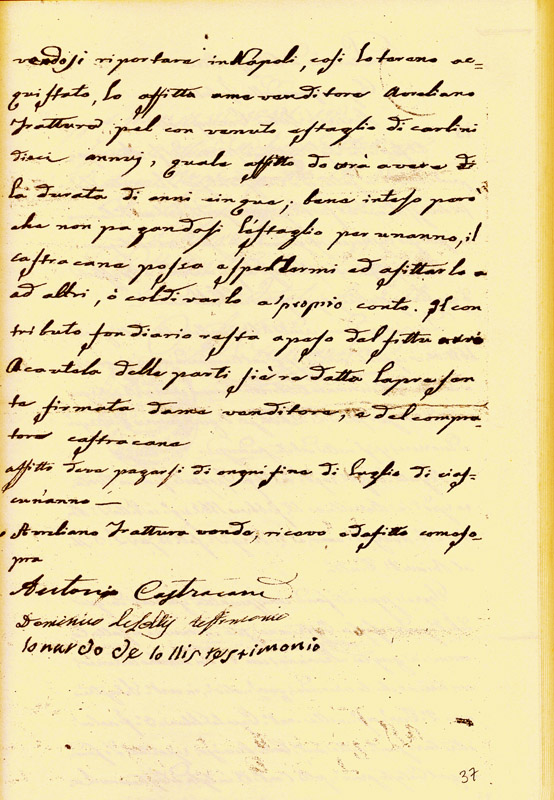 vendosi riportare in Napoli, così lo tereno ac=
quistato, lo affitta a me venditore Aureliano
Tratturo pel con venuto estaglio di carlini
dieci annuj, quale affitto dovrà avere
la durata di anni cinque; bene inteso però
che non pagandosi l'estaglio per un anno, il
castracane possa espellermi ed afittarlo a
ad altri, ò coldivarlo a sproprio conto. Il con
tributo fondiario resta apeso del fitta
Acautela delle parti siè redatta la presen
te firmata dame venditore, e del compra-
tore castracane
affitto deve pagarsi di ongni fine di luglio di cias-
cun'anno —
Aureliano Tratturo vendo, ricevo ed afitto comeso-
pra
Antonio Castracane
Domenico testimonio
lonardo de lollis testimonio
37